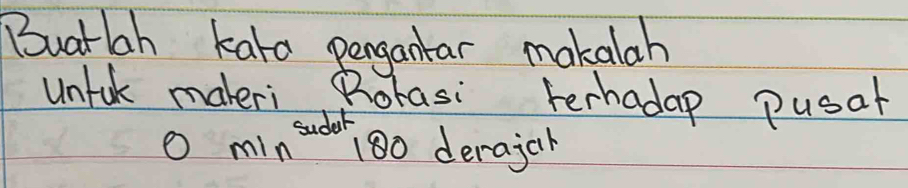 Buatlah kata pengantar makalah
untuk materi Rotasi terhadap pusat
0 min sudut 180 derajat